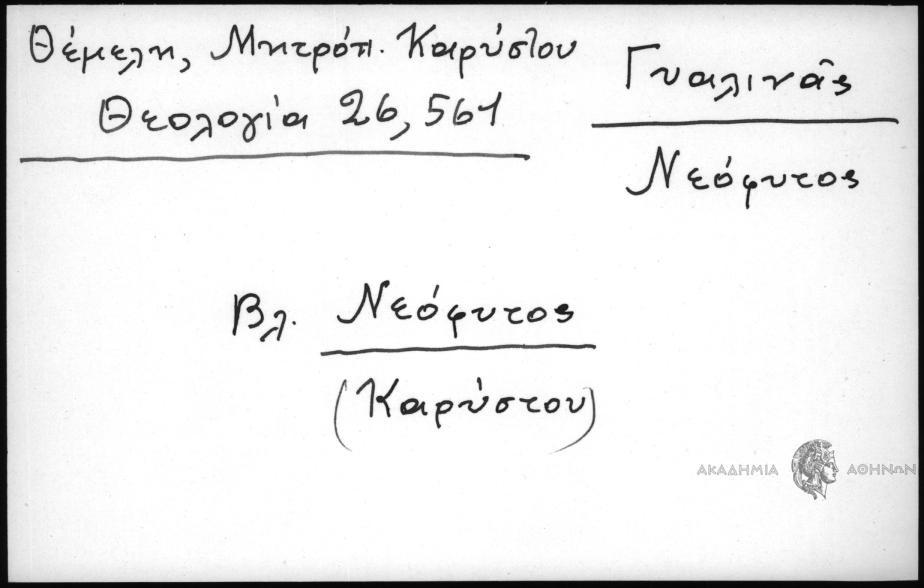 Θέμελη, Μητρόπ. Καρύστου
Θεολογία 26, 561
Γυαλινᾶς
Νεόφυτος
Βλ. Νεόφυτος
(Καρύστου)
ΑΚΑΔΗΜΙΑ ΑΘΗΝΩΝ